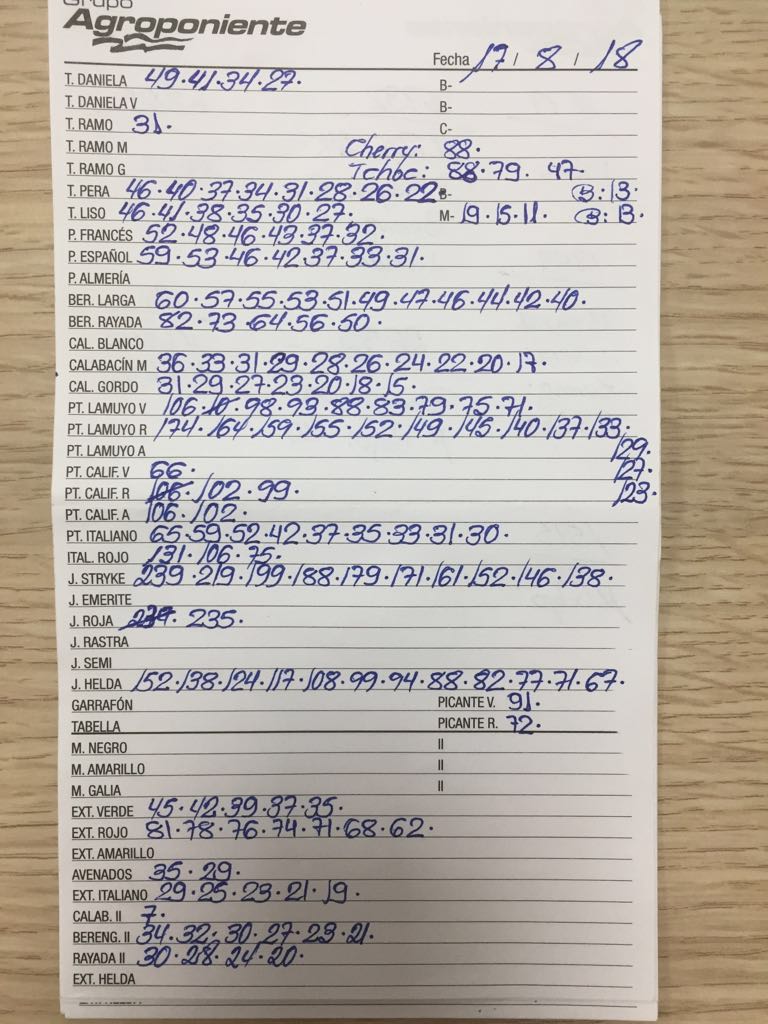 Grupo
Agroponiente
Fecha 17 / 8 / 18
T. DANIELA 49·41·34·27· B-
T. DANIELA V B-
T. RAMO 31· C-
T. RAMO M Cherry: 88·
T. RAMO G Tchoc: 88·79· 47·
T. PERA 46·40·37·34·31·28·26·22· B- B:13·
T. LISO 46·41·38·35·30·27· M- 19·15·11· B:13·
P. FRANCÉS 52·48·46·43·37·32·
P. ESPAÑOL 59·53·46·42·37·33·31·
P. ALMERÍA
BER. LARGA 60·57·55·53·51·49·47·46·44·42·40·
BER. RAYADA 82·73·64·56·50·
CAL. BLANCO
CALABACÍN M 36·33·31·29·28·26·24·22·20·17·
CAL. GORDO 31·29·27·23·20·18·15·
PT. LAMUYO V 106· 98·93·88·83·79·75·71·
PT. LAMUYO R 174·164·159·155·152·149·145·140·137·133·
PT. LAMUYO A 129·
PT. CALIF. V 66· 127·
PT. CALIF. R 106·102·99· 123·
PT. CALIF. A 106·102·
PT. ITALIANO 65·59·52·42·37·35·33·31·30·
ITAL. ROJO 131·106·75·
J. STRYKE 239·219·199·188·179·171·161·152·146·138·
J. EMERITE
J. ROJA 235·
J. RASTRA
J. SEMI
J. HELDA 152·138·124·117·108·99·94·88·82·77·71·67·
GARRAFÓN PICANTE V. 91·
TABELLA PICANTE R. 72·
M. NEGRO II
M. AMARILLO II
M. GALIA II
EXT. VERDE 45·42·39·37·35·
EXT. ROJO 81·78·76·74·71·68·62·
EXT. AMARILLO
AVENADOS 35·29·
EXT. ITALIANO 29·25·23·21·19·
CALAB. II 7·
BERENG. II 34·32·30·27·23·21·
RAYADA II 30·28·24·20·
EXT. HELDA